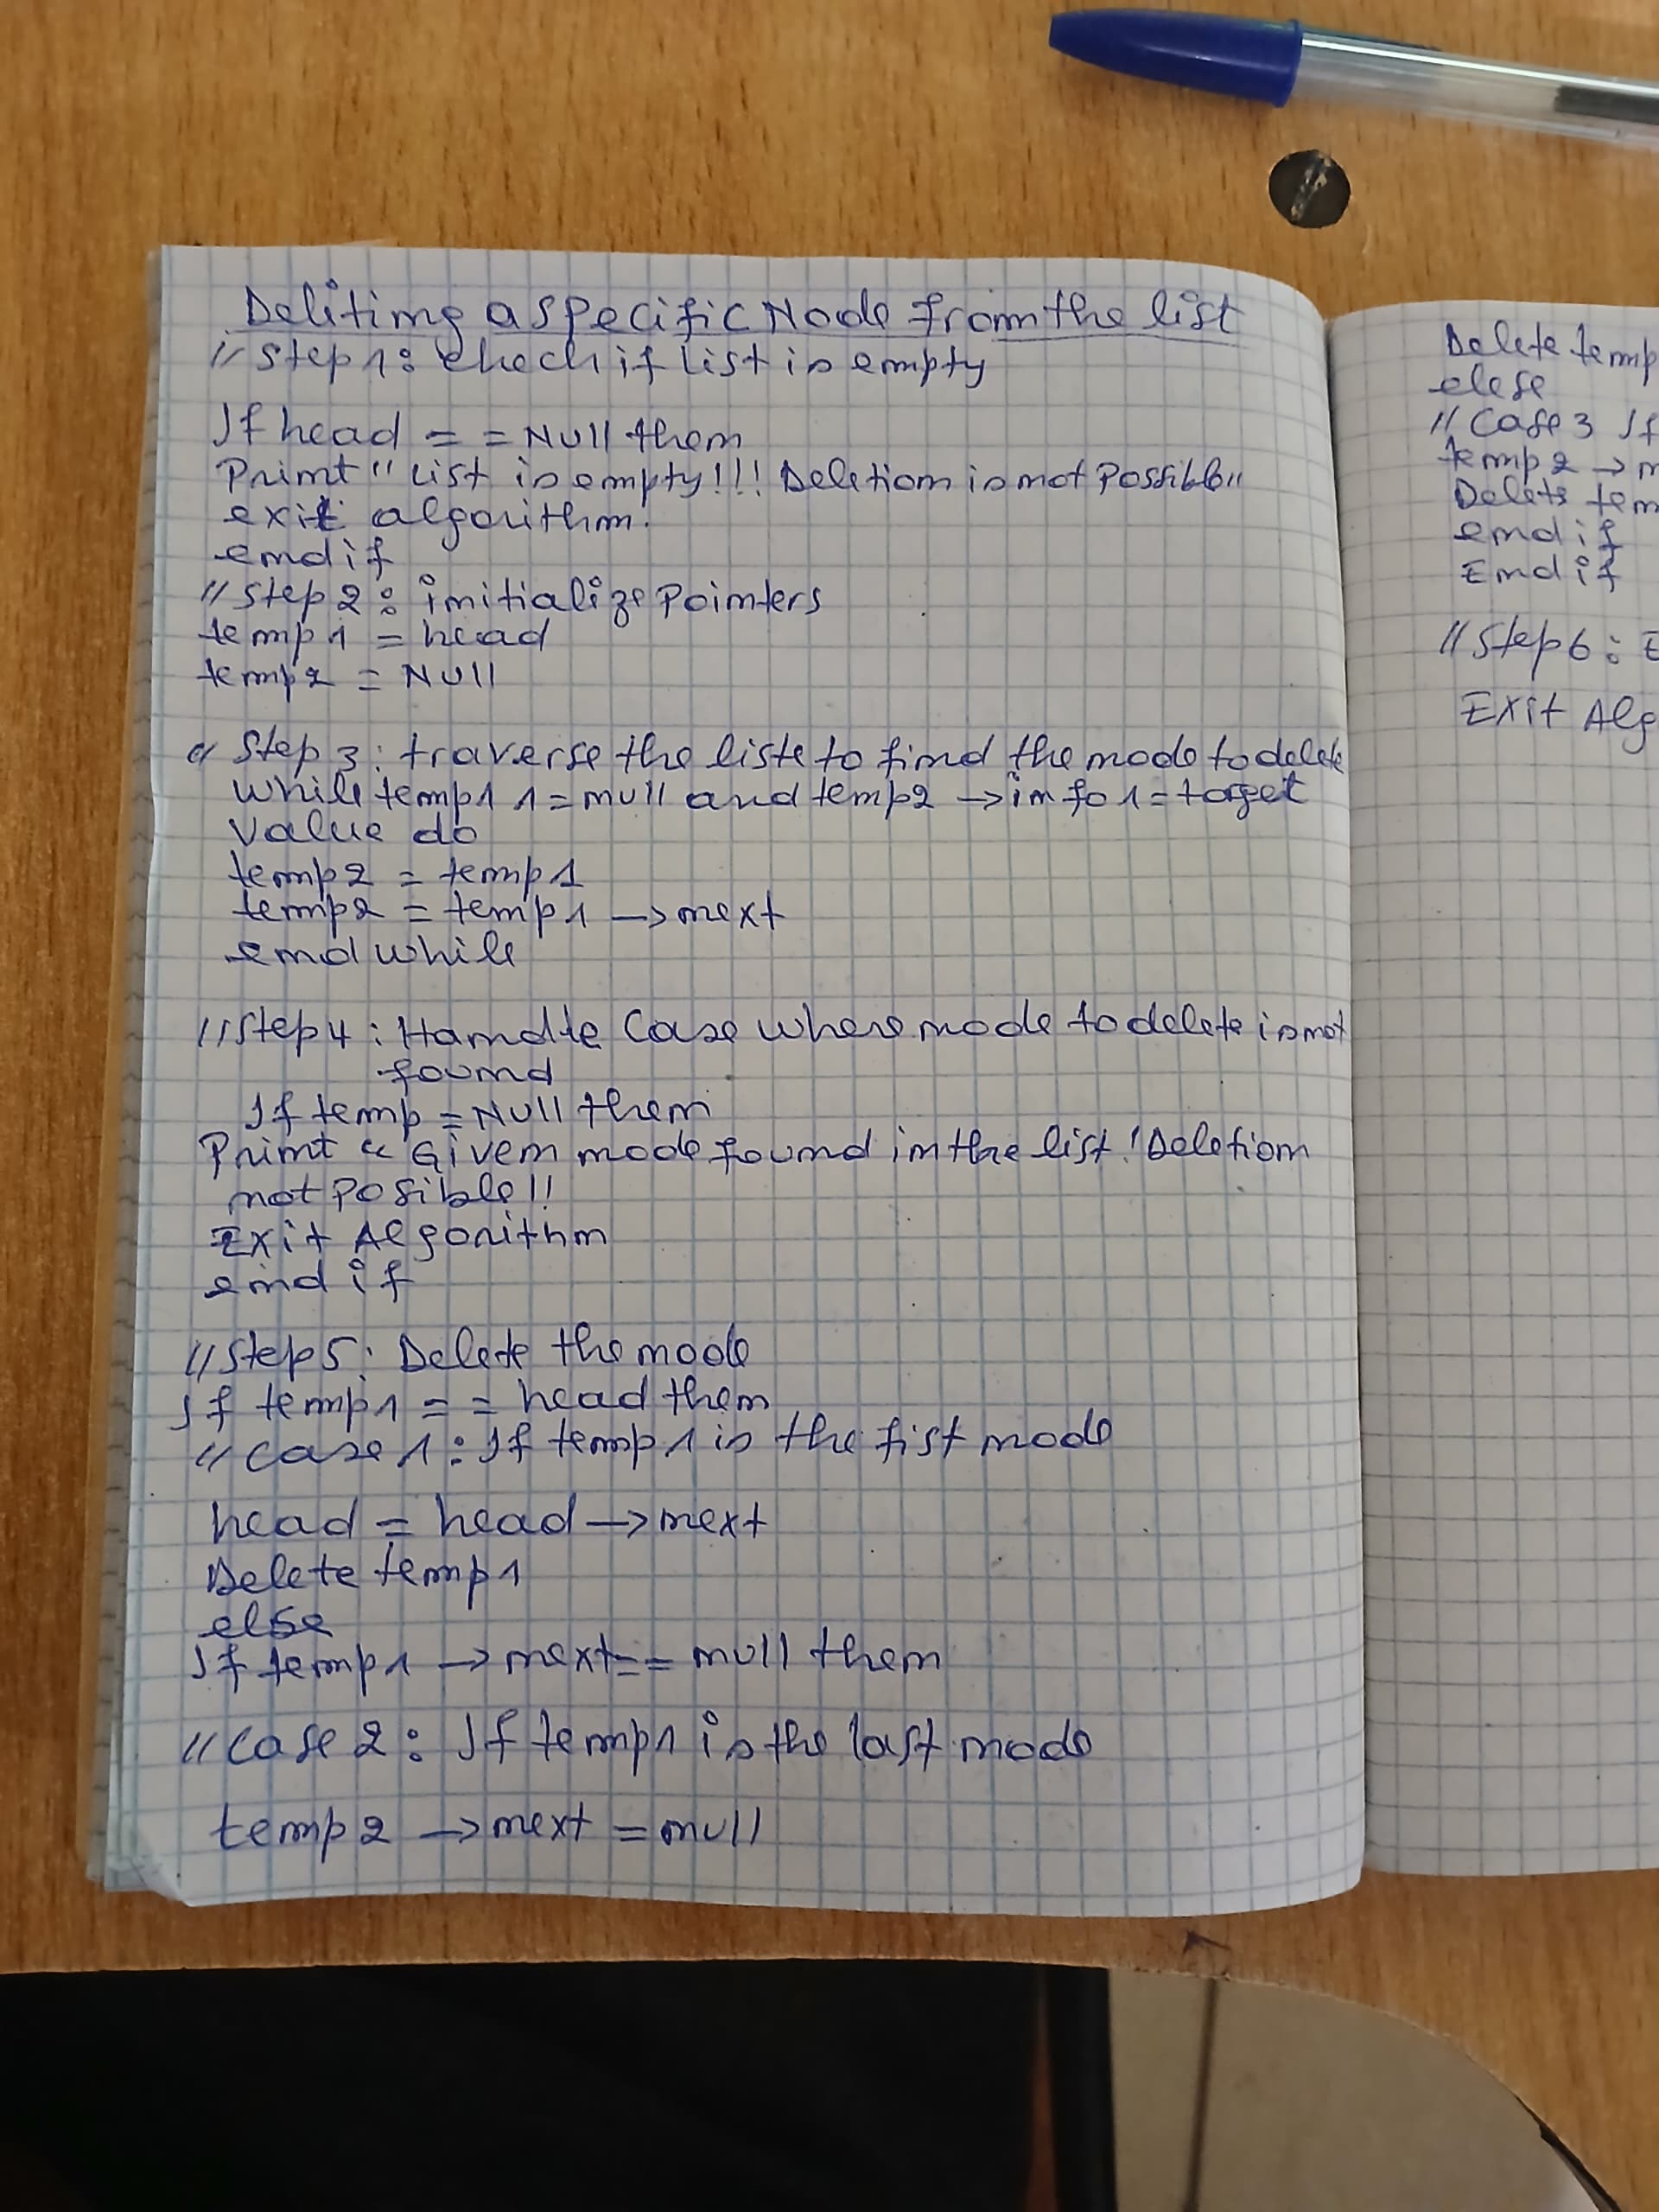 Deliting a specific Node from the list
// Step 1: check if list is empty
If head = = NUll then
Print " List is empty!!! Deletion is not Possible"
exit algorithm.
end if
// Step 2: initialize Pointers
temp 1 = head
temp 2 = NUll
// Step 3: traverse the liste to find the node to delete
While temp1 1= null and temp2 → info 1= target
value do
temp2 = temp1
temp2 = temp1 → next
end while
// Step 4: Handle Case where node to delete is not
found
If temp = NUll then
Print " Given node found in the list! Deletion
not Posible!!
Exit Algorithm
end if
// Step 5: Delete the node
If temp1 = = head then
// case 1: If temp1 is the fist node
head = head → next
Delete temp1
else
If temp1 → next == null then
// Case 2: If temp1 is the last node
temp2 → next = null
Delete temp
elese
// Case 3 If
temp2 →
Delete
end if
End if
// Step 6:
Exit